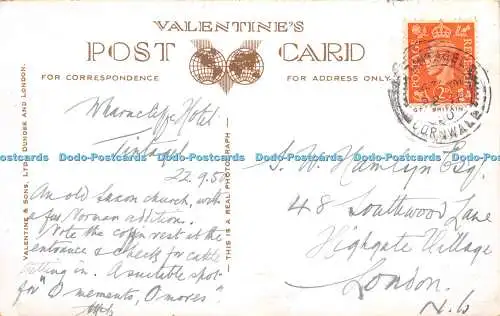 VALENTINE'S
POST CARD
FOR CORRESPONDENCE
FOR ADDRESS ONLY
VALENTINE & SONS, LTD., DUNDEE AND LONDON.
— THIS IS A REAL PHOTOGRAPH —
Wharncliffe Hotel
Tintagel
22.9.50
An old Saxon church, with
a few Norman addition.
Note the coffin rest at the
entrance & check for cattle
getting in. A suitable spot
for "O memento, O mores."
S. W. Hamlyn Esq.
48 Southwood Lane
Highgate Village
London.
N.6
POSTAGE REVENUE
CORNWALL
Dodo-Postcards Dodo-Postcards Dodo-Postcards Dodo-Postcards Dodo-Postcards Dodo-Postcards